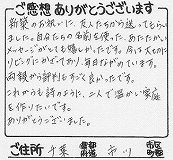 ご感想 ありがとうございます
新築のお祝いに、友人たちから送ってもらい
ました。自分たちの名前を使った、あたたかい
メッセージがとても嬉しかったです。今も大切に
リビングにかざっており、毎日ながめています。
両親から評判もすごく良かったです。
これからも詩のように、二人で温かい家庭
を作りたいです。
ありがとうございました。
ご住所 千葉 都道府県 市川 市区町村